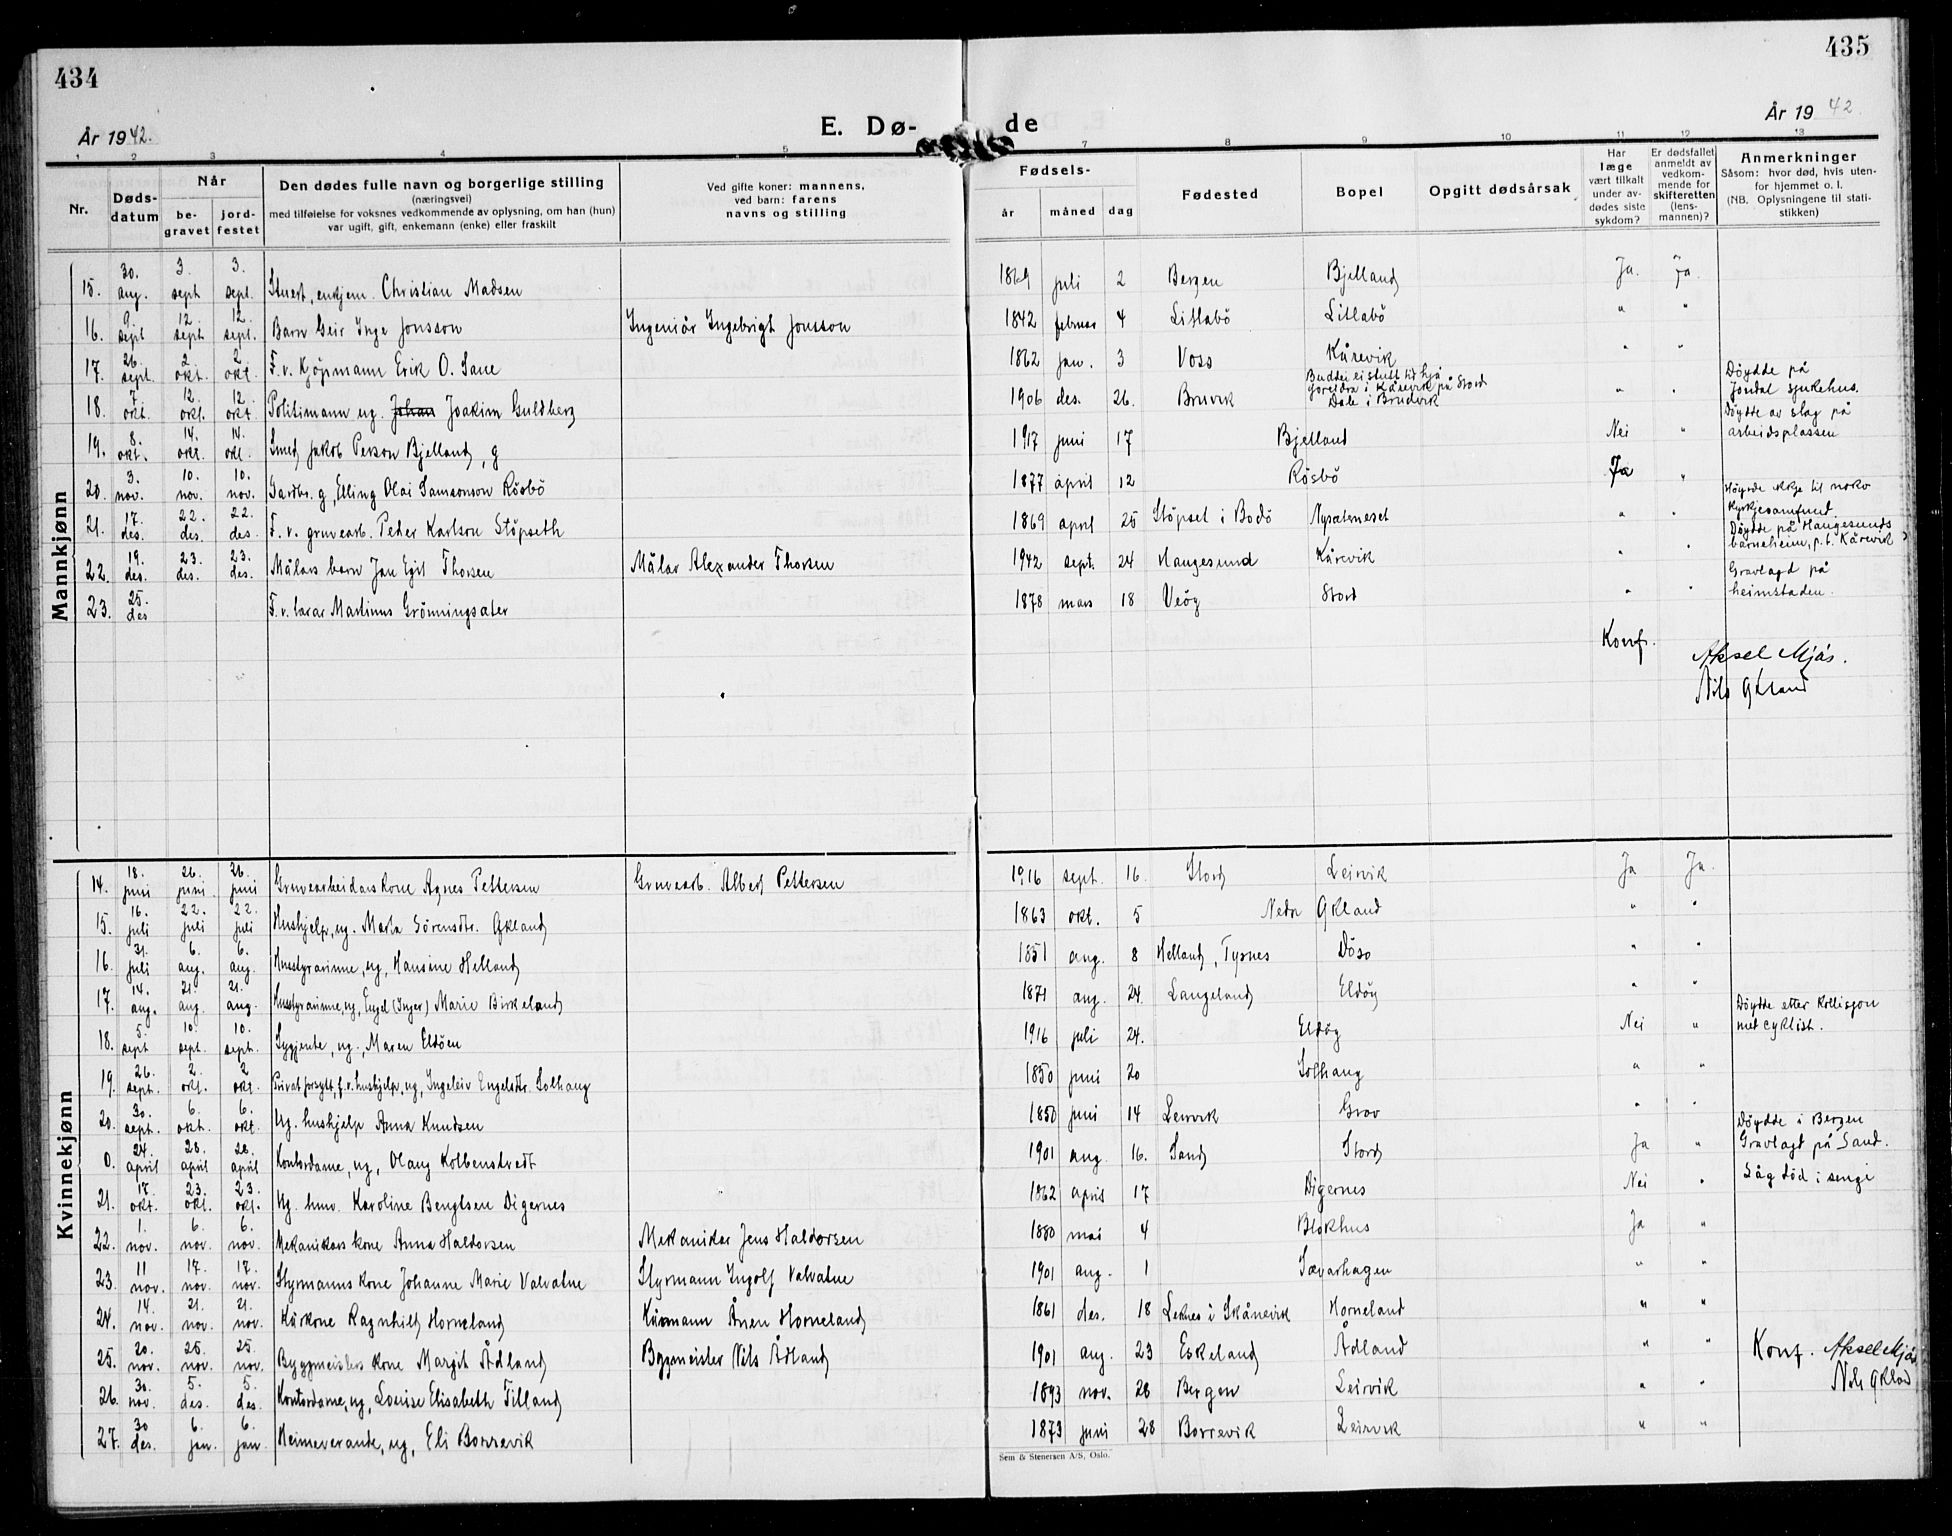 434
435
År 1942.
E. Dø-
de
År 19 42.
1 2 3 4 5 7 8 9 10 11 12 13
Nr.
Døds-
datum
Når
be-
gravet
jord-
festet
Den dødes fulle navn og borgerlige stilling
(næringsvei)
med tilføielse for voksnes vedkommende av oplysning, om han (hun)
var ugift, gift, enkemann (enke) eller fraskilt
Ved gifte koner: mannens,
ved barn: farens
navns og stilling
Fødsels-
år måned dag
Fødested
Bopel
Opgitt dødsårsak
Har
læge
vært tilkalt
under av-
dødes siste
sykdom?
Er dødsfallet
anmeldt av
vedkom-
mende for
skifteretten
(lens-
mannen)?
Anmerkninger
Såsom: hvor død, hvis uten-
for hjemmet o. l.
(NB. Oplysningene til stati-
stikken)
Mannkjønn
15. 30. aug. 3. sept 3. sept. Stuert, enkjem. Christian Madsen 1869 juli 2 Bergen Bjelland Ja. Ja.
16. 9. sept 12. sept 12. sept. Barn Geir Inge Jonsson Ingeniör Ingebrigt Jonsson 1842 februar 4 Litlabö Litlabö " "
17. 26. sept. 2. okt. 2 okt. F. v. Kjöpmann Erik O. Sane 1862 jan. 3 Voss Kårevik " "
18. 7. okt. 12. okt. 12. okt. Politimann ug. Johan Joakim Guldberg 1906 des. 26. Bruvik Budde ei stutt tid hjå foreldra i Kårevik på Stord Dale i Brudvik " " Döydde på Jondal sjukehus.
19. 8. okt. 14. okt. 14. okt. Smed Jakob Person Bjelland, g 1917 juni 17 Bjelland Nei " Döydde av slag på arbeidsplassen
20. 3. nov. 10. nov. 10. nov. Gardbr. g, Elling Olai Samsonson Rösbö 1877 april 12 Rösbö Ja "
21. 17. des. 22. des. 22. des. F. v. gruvearb. Peder Karlson Stöpseth 1869 april 25 Stöpset i Bodö Nysæterneset " " Höyrde ikkje til noko kyrkjesamfund.
22. 19. des. 23. des. 23. des. Målars barn Jan Egil Thorsen Målar Alexander Thorsen 1942 sept. 24 Haugesund Kårevik " " Döydde på Haugesunds barneheim, p.t. Kårevik
23. 25. des F. v. lærar Martinus Grönningsæter 1878 mars 18 Veöy Stord " " Gravlagd på heimstaden.
Konf. Aksel Mjös.
Nils Økland
Kvinnekjønn
14. 18. juni 26. juni 26. juni Gruvearbeidars kone Agnes Pettersen Gruvearb. Albert Pettersen 1916 sept. 16. Stord Leirvik Ja Ja.
15. 16. juli 22. juli 22. juli Hushjelp, ug. Marta Sörensdtr. Økland 1863 okt. 5 Nedr Økland " "
16. 31. juli 6. aug. 6. aug. Husstyrarinne, ug, Hansine Helland 1851 aug. 8 Helland, Tysnes Döso " "
17. 14. aug. 21. aug. 21. aug. Husstyrarinne, ug, Engel (Inger) Marie Birkeland 1871 aug. 24. Langeland Eldöy " "
18. 5. sept 10. sept. 10. sept. Sygjente, ug., Maren Eldöen 1916 juli 24. Eldöy Nei " Döydde etter kollisjon med cyklist.
19. 26. sept. 2. okt. 2 okt. Privat forsytt, f. v. hushjelp, ug, Ingeleiv Engelsdtr. Solhaug 1850 juni 20 Solhaug " "
20. 30. sept. 6. okt. 6. okt. Ug. hushjelp Anna Knudsen 1850 juni 14 Leirvik Grov " "
0. 24. april 28. april 28. april Kontordame, ug, Olaug Kolbenstvedt 1901 aug. 16. Sand Stord Ja " Döydde i Bergen Gravlagt på Sand.
21. 17. okt. 23. okt. 23. okt. Ug. husv. Karoline Bengtsen Digernes 1862 april 17 Digernes Nei " Låg död i senge
22. 1. nov. 6. nov. 6. nov. Mekanikars kone Anna Haldorsen Mekanikar Jens Haldorsen 1880 mai 4 Blokhus Ja "
23. 11 nov. 17. nov. 17. nov. Styrmanns kone Johanne Marie Valvatne Styrmann Ingolf Valvatne 1901 aug. 1 Sævarhagen " "
24. 14. nov. 21. nov. 21. nov. Kårkone Ragnhild Horneland Kårmann Ånen Horneland 1861 des. 18 Leknes i Skånevik Horneland " "
25. 20. nov. 25. nov. 25. nov. Byggmeisters kone Margit Ådland Byggmeister Nils Ådland 1901 aug. 23 Eskeland Ådland " "
26. 30. nov. 5. des. 5. des. Kontordame, ug, Louise Elisabeth Tilland 1893 nov. 28 Bergen Leirvik " "
27. 30 des. 6. jan. 6. jan. Heimeverande, ug, Eli Borrevik 1873 juni 28 Borrevik Leirvik " "
Konf. Aksel Mjös
Nils Økland
Sem & Stenersen A/S, Oslo.